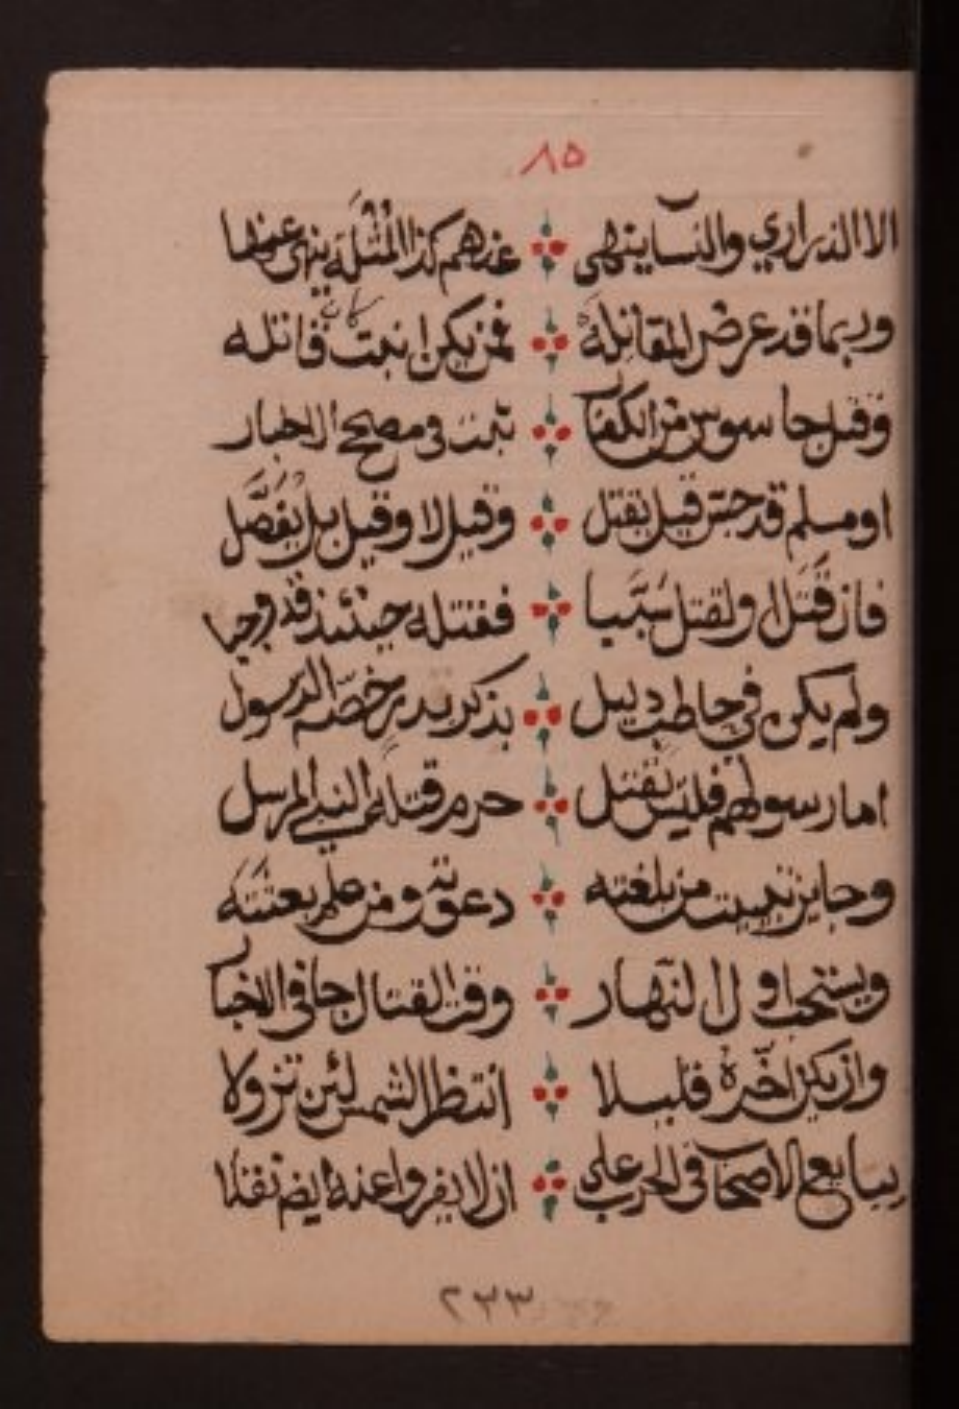 ٨٥
الا الذراري والنسا ينهى عنهم كذا المثلة ينهى عنها
وربما قد عرض المقاتله فمن يكن انبت كان قاتله
وقتل جاسوس من الكفار ثبت في مصحح الاخبار
او مسلم قد جس قيل يقتل وقيل لا وقيل بل يفصل
فان قتلا ولقتل سببا فقتله حينئذ قد وجبا
ولم يكن في حاطب دليل بذكر بدر خصه الرسول
اما رسولهم فليس يقتل حرم قتله النبي المرسل
وجايز تبييت من بلغته دعوته ومن علم بعثته
ويستحب اول النهار وقت القتال جا في الاخبار
وان يكن اخره قليلا انتظر الشمس لئن تزولا
يبايع الاصحاب في الحرب على ان لا يفروا عنه ايضا نقلا
٢٣٣